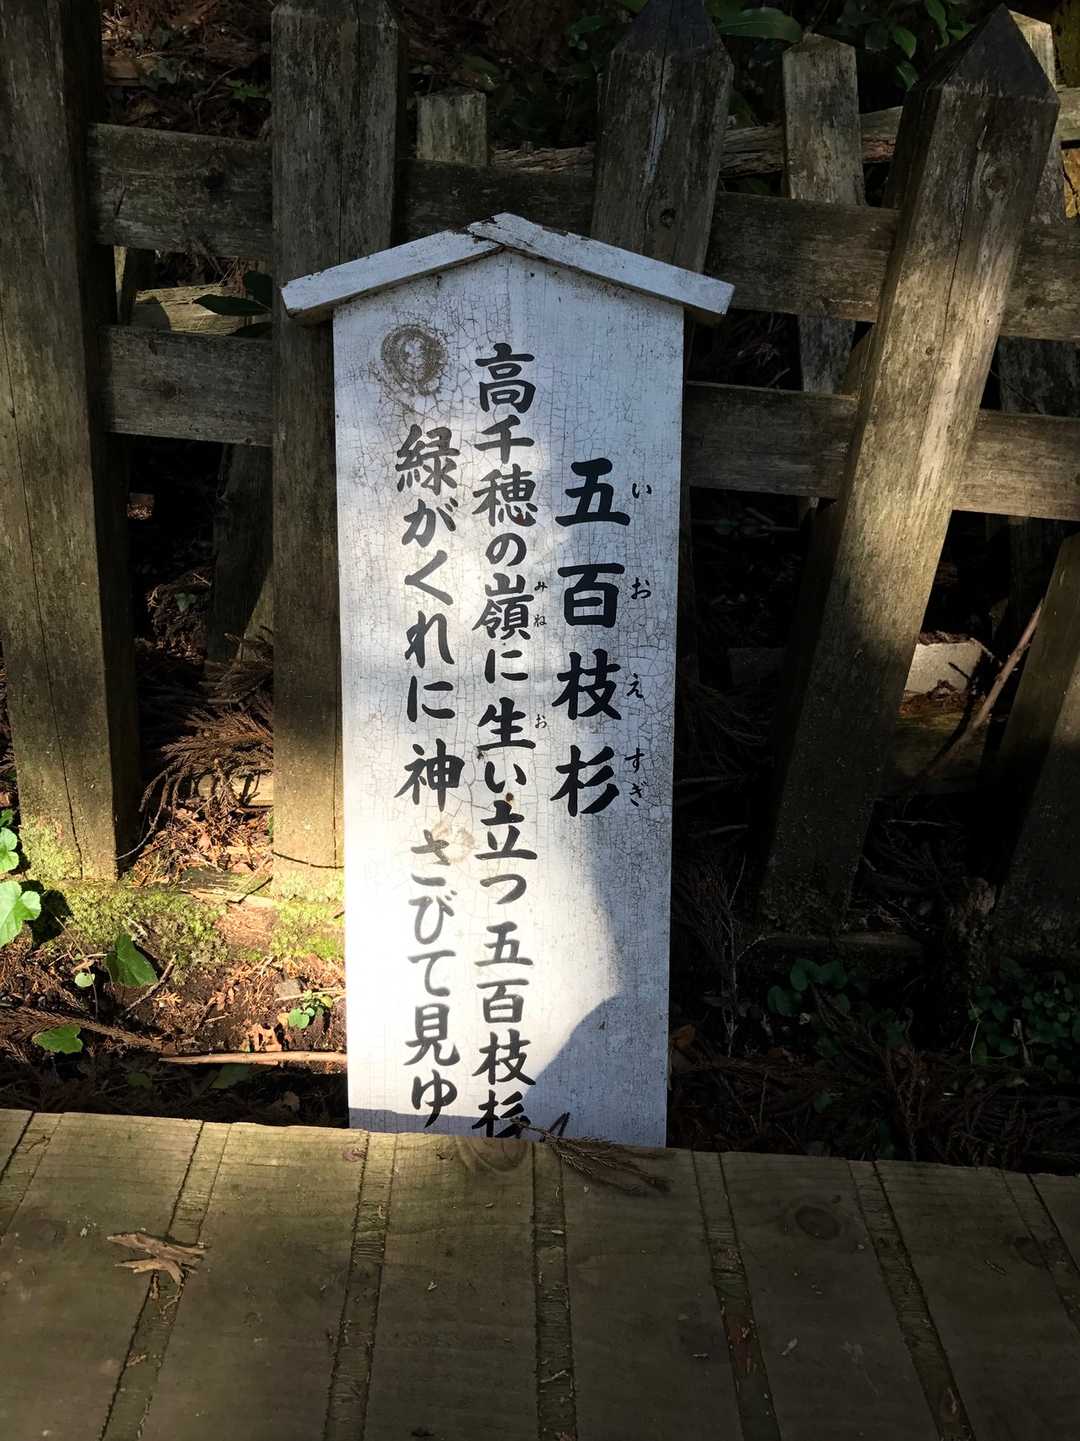 五百枝杉
いおえすぎ
高千穂の嶺に生い立つ五百枝杉
みね
お
緑がくれに神さびて見ゆ